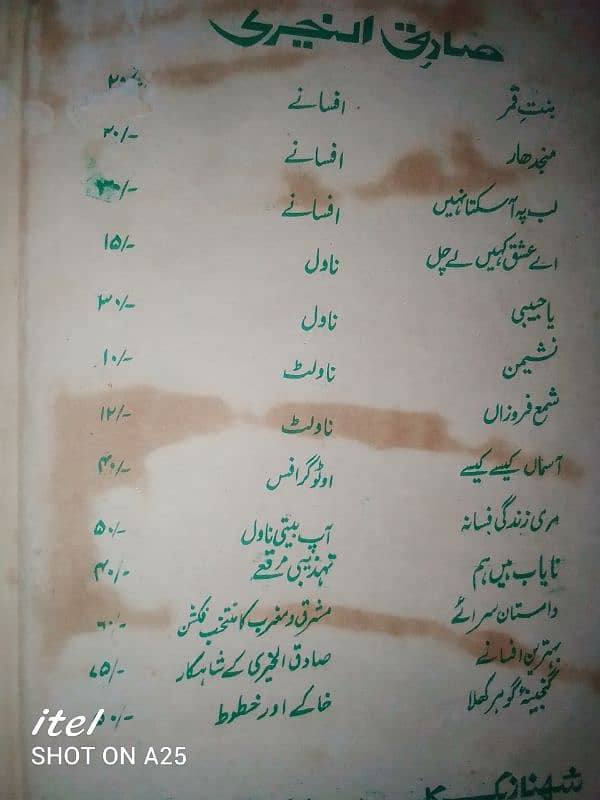 صادق الخیری
بنتِ قمر افسانے ۲۰/-
منجدھار افسانے ۲۰/-
لب پہ آ سکتا نہیں افسانے ۳۰/-
اے عشق کہیں لے چل ناول ۱۵/-
یا حبیبی ناول ۳۰/-
نشیمن ناولٹ ۱۰/-
شمع فروزاں ناولٹ ۱۲/-
آسماں کیسے کیسے اوٹوگرافس ۴۰/-
مری زندگی فسانہ آپ بیتی ناول ۵۰/-
نایاب ہیں ہم تہذیبی مرقعے ۴۰/-
داستان سرائے مشرق و مغرب کا منتخب فکشن ۶۰/-
بہترین افسانے صادق الخیری کے شاہکار ۷۵/-
گنجینۂ گوہر کھلا خاکے اور خطوط
شہناز
itel
SHOT ON A25